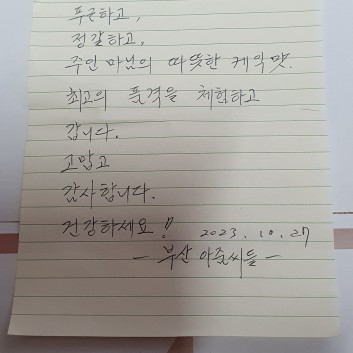 푸근하고,
정갈하고,
주인 마님의 따뜻한 계익맛.
최고의 품격을 체험하고
갑니다.
고맙고
감사합니다.
건강하세요!! 2023. 10. 27
- 부산 아줌씨들 -